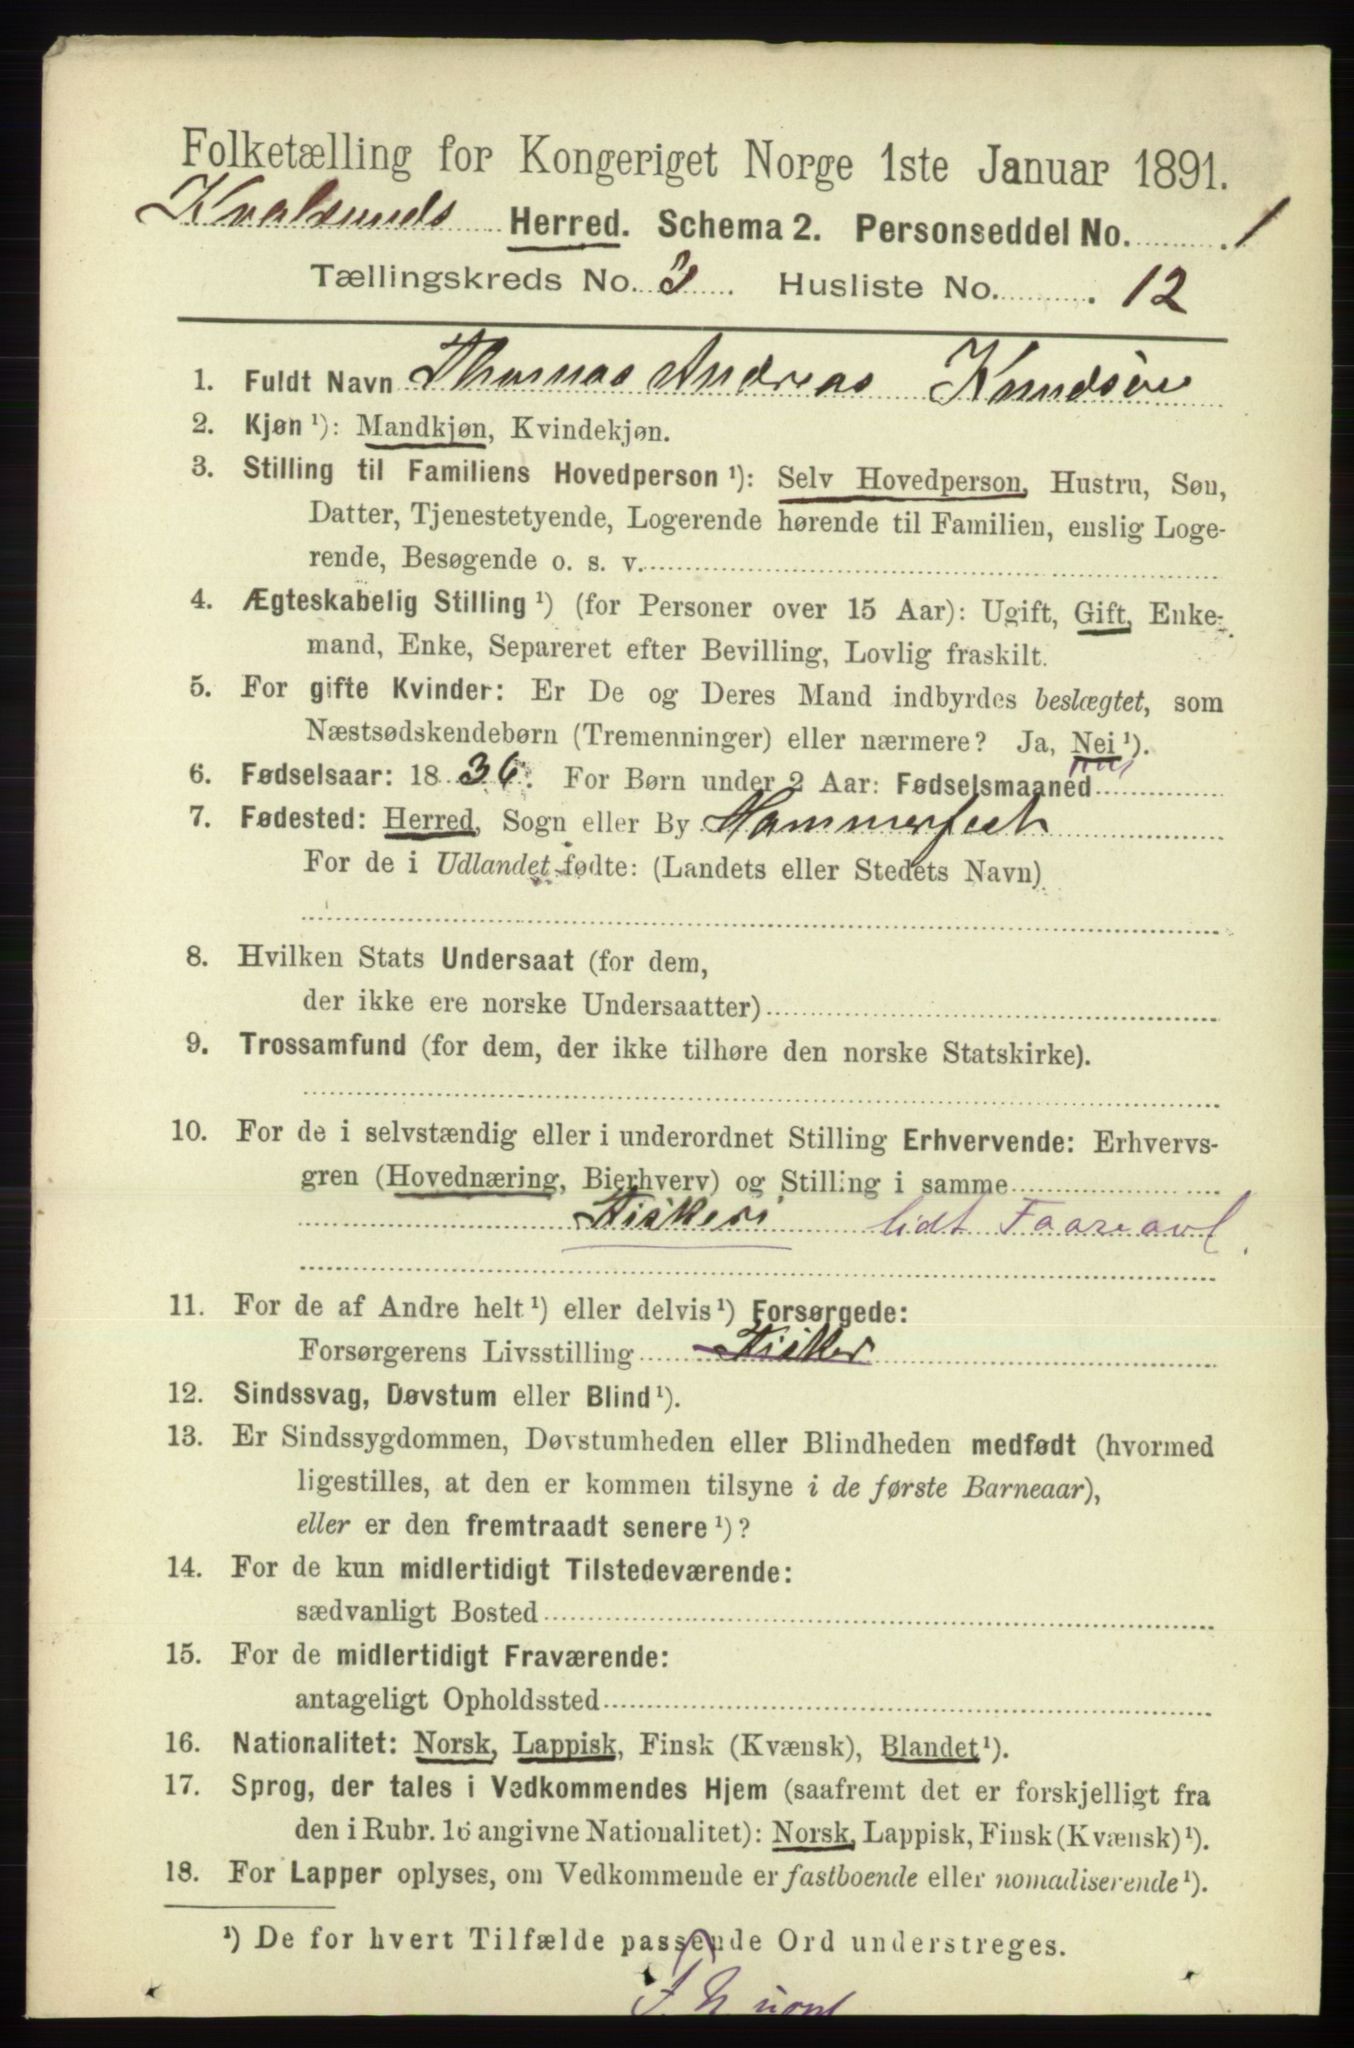 Folketælling for Kongeriget Norge 1ste Januar 1891.
Kvalsunds Herred. Schema 2. Personseddel No. 1
Tællingskreds No. 3 Husliste No. 12
1. Fuldt Navn Thomas Andreas Knudsen
2. Kjøn ¹): Mandkjøn, Kvindekjøn.
3. Stilling til Familiens Hovedperson ¹): Selv Hovedperson, Hustru, Søn,
Datter, Tjenestetyende, Logerende hørende til Familien, enslig Loge-
rende, Besøgende o. s. v.
4. Ægteskabelig Stilling ¹) (for Personer over 15 Aar): Ugift, Gift, Enke-
mand, Enke, Separeret efter Bevilling, Lovlig fraskilt.
5. For gifte Kvinder: Er De og Deres Mand indbyrdes beslægtet, som
Næstsødskendebørn (Tremenninger) eller nærmere? Ja, Nei ¹).
6. Fødselsaar: 1836. For Børn under 2 Aar: Fødselsmaaned
7. Fødested: Herred, Sogn eller By Hammerfest
For de i Udlandet fødte: (Landets eller Stedets Navn)
8. Hvilken Stats Undersaat (for dem,
der ikke ere norske Undersaatter)
9. Trossamfund (for dem, der ikke tilhøre den norske Statskirke).
10. For de i selvstændig eller i underordnet Stilling Erhvervende: Erhvervs-
gren (Hovednæring, Bierhverv) og Stilling i samme
Fiskeri lidt Faareavl.
11. For de af Andre helt ¹) eller delvis ¹) Forsørgede:
Forsørgerens Livsstilling Fisker
12. Sindssvag, Døvstum eller Blind ¹).
13. Er Sindssygdommen, Døvstumheden eller Blindheden medfødt (hvormed
ligestilles, at den er kommen tilsyne i de første Barneaar),
eller er den fremtraadt senere ¹)?
14. For de kun midlertidigt Tilstedeværende:
sædvanligt Bosted
15. For de midlertidigt Fraværende:
antageligt Opholdssted
16. Nationalitet: Norsk, Lappisk, Finsk (Kvænsk), Blandet ¹).
17. Sprog, der tales i Vedkommendes Hjem (saafremt det er forskjelligt fra
den i Rubr. 16 angivne Nationalitet): Norsk, Lappisk, Finsk (Kvænsk) ¹).
18. For Lapper oplyses, om Vedkommende er fastboende eller nomadiserende ¹).
¹) De for hvert Tilfælde passende Ord understreges.